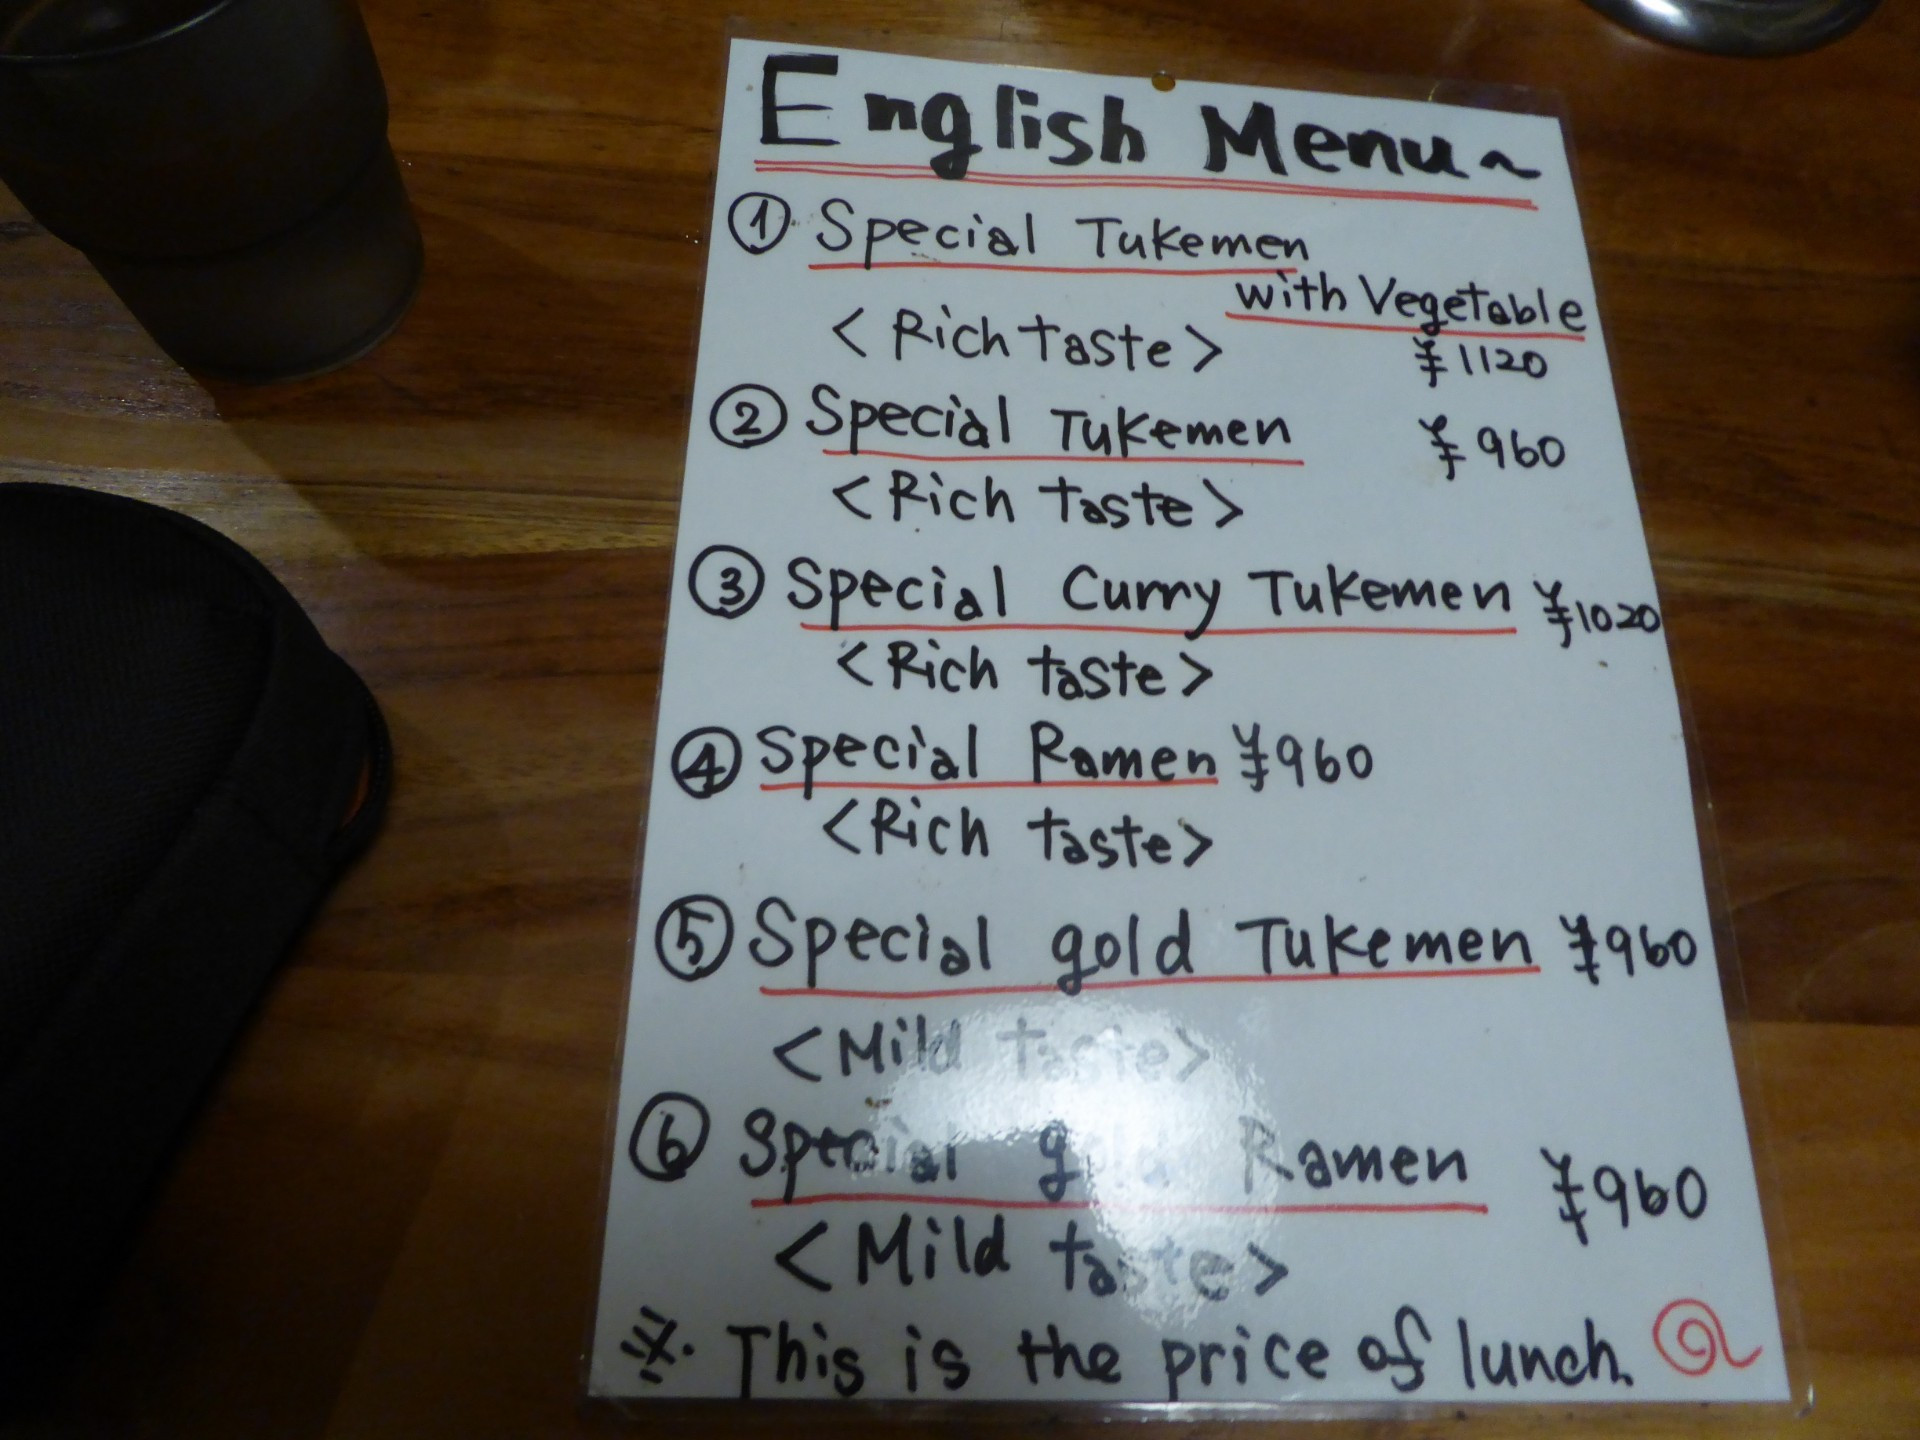 English Menu~
① Special Tukemen
with Vegetable
<Rich taste> ¥1120
② Special Tukemen ¥960
<Rich taste>
③ Special Curry Tukemen ¥1020
<Rich taste>
④ Special Ramen ¥960
<Rich taste>
⑤ Special gold Tukemen ¥960
<Mild taste>
⑥ Special gold Ramen ¥960
<Mild taste>
※. This is the price of lunch.